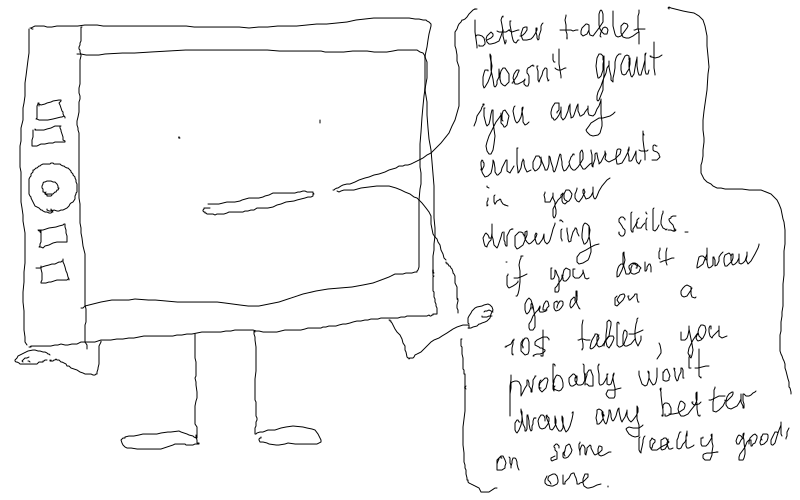 better tablet
doesn't grant
you any
enhancements
in your
drawing skills.
if you don't draw
good on a
10$ tablet, you
probably won't
draw any better
on some really good
one.